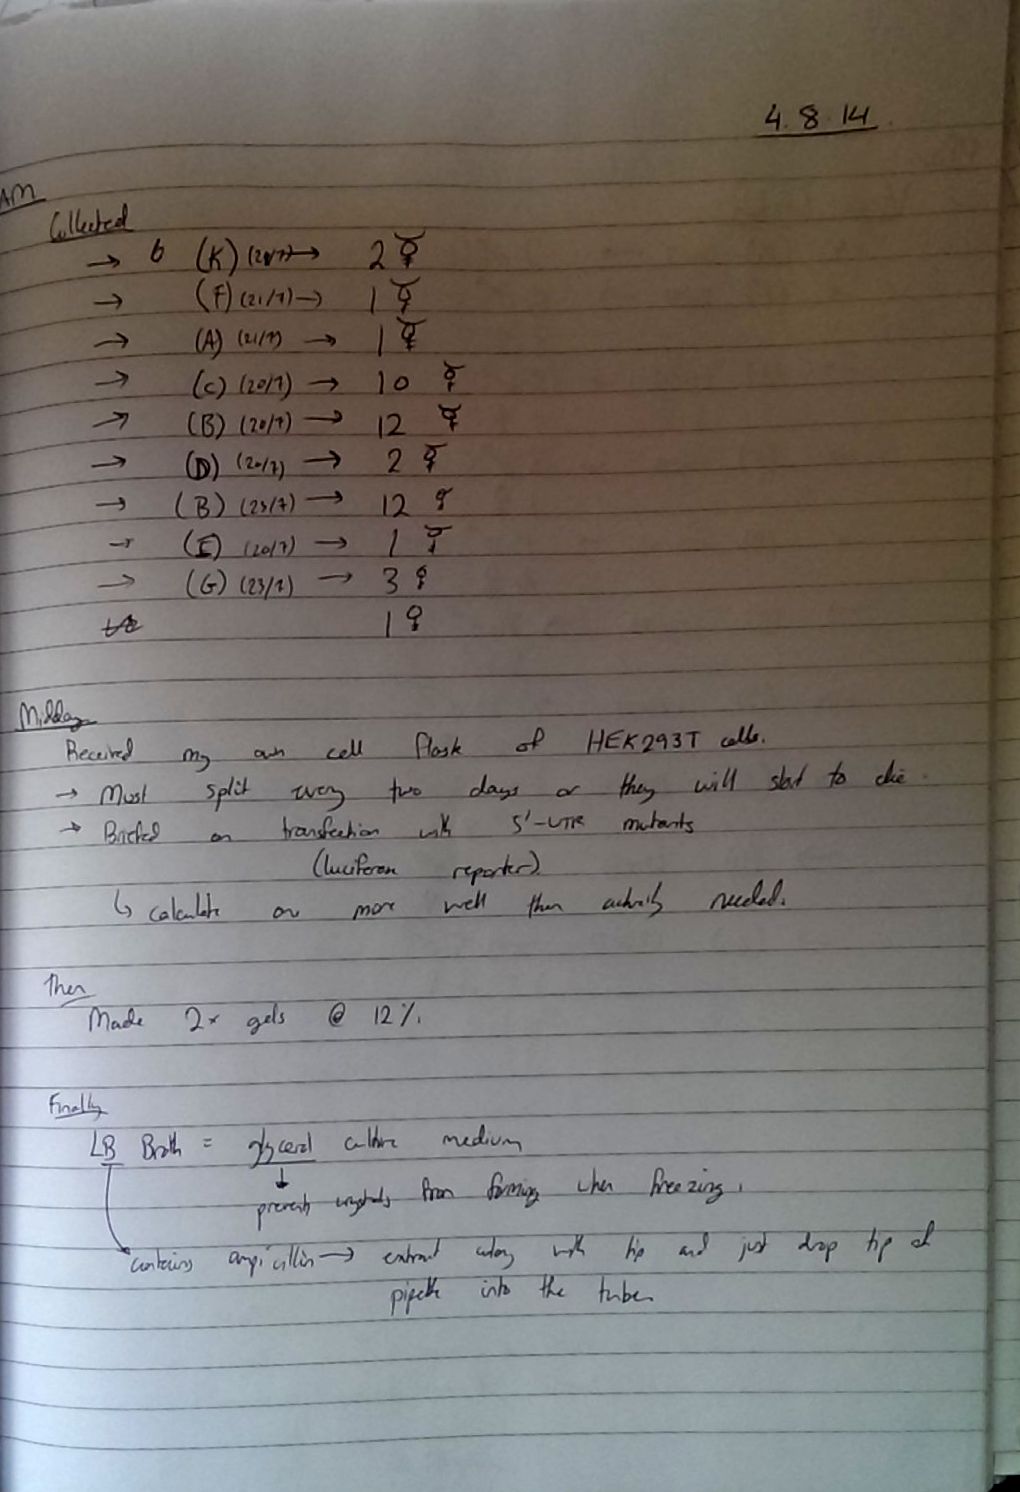 4.8.14
AM
Collected
→ 6 (K) → 2 ☿
→ (F) (21/7) → 1 ☿
→ (A) (21/7) → 1 ☿
→ (C) (20/7) → 10 ☿
→ (B) (20/7) → 12 ☿
→ (D) (20/7) → 2 ☿
→ (B) (23/7) → 12 ♀
→ (E) (20/7) → 1 ☿
→ (G) (23/7) → 3 ♀
1 ♀
Midday
Received my own cell flask of HEK293T cells.
→ Must split every two days or they will start to die.
→ Briefed on transfection with 5'-UTR mutants
(luciferase reporter)
↳ calculate one more well than actually needed.
Then
Made 2x gels @ 12%.
Finally
LB Broth = glycerol culture medium
↓
prevents crystals from forming when freezing.
contains ampicillin → extract colony with tip and just drop tip of
pipette into the tube.